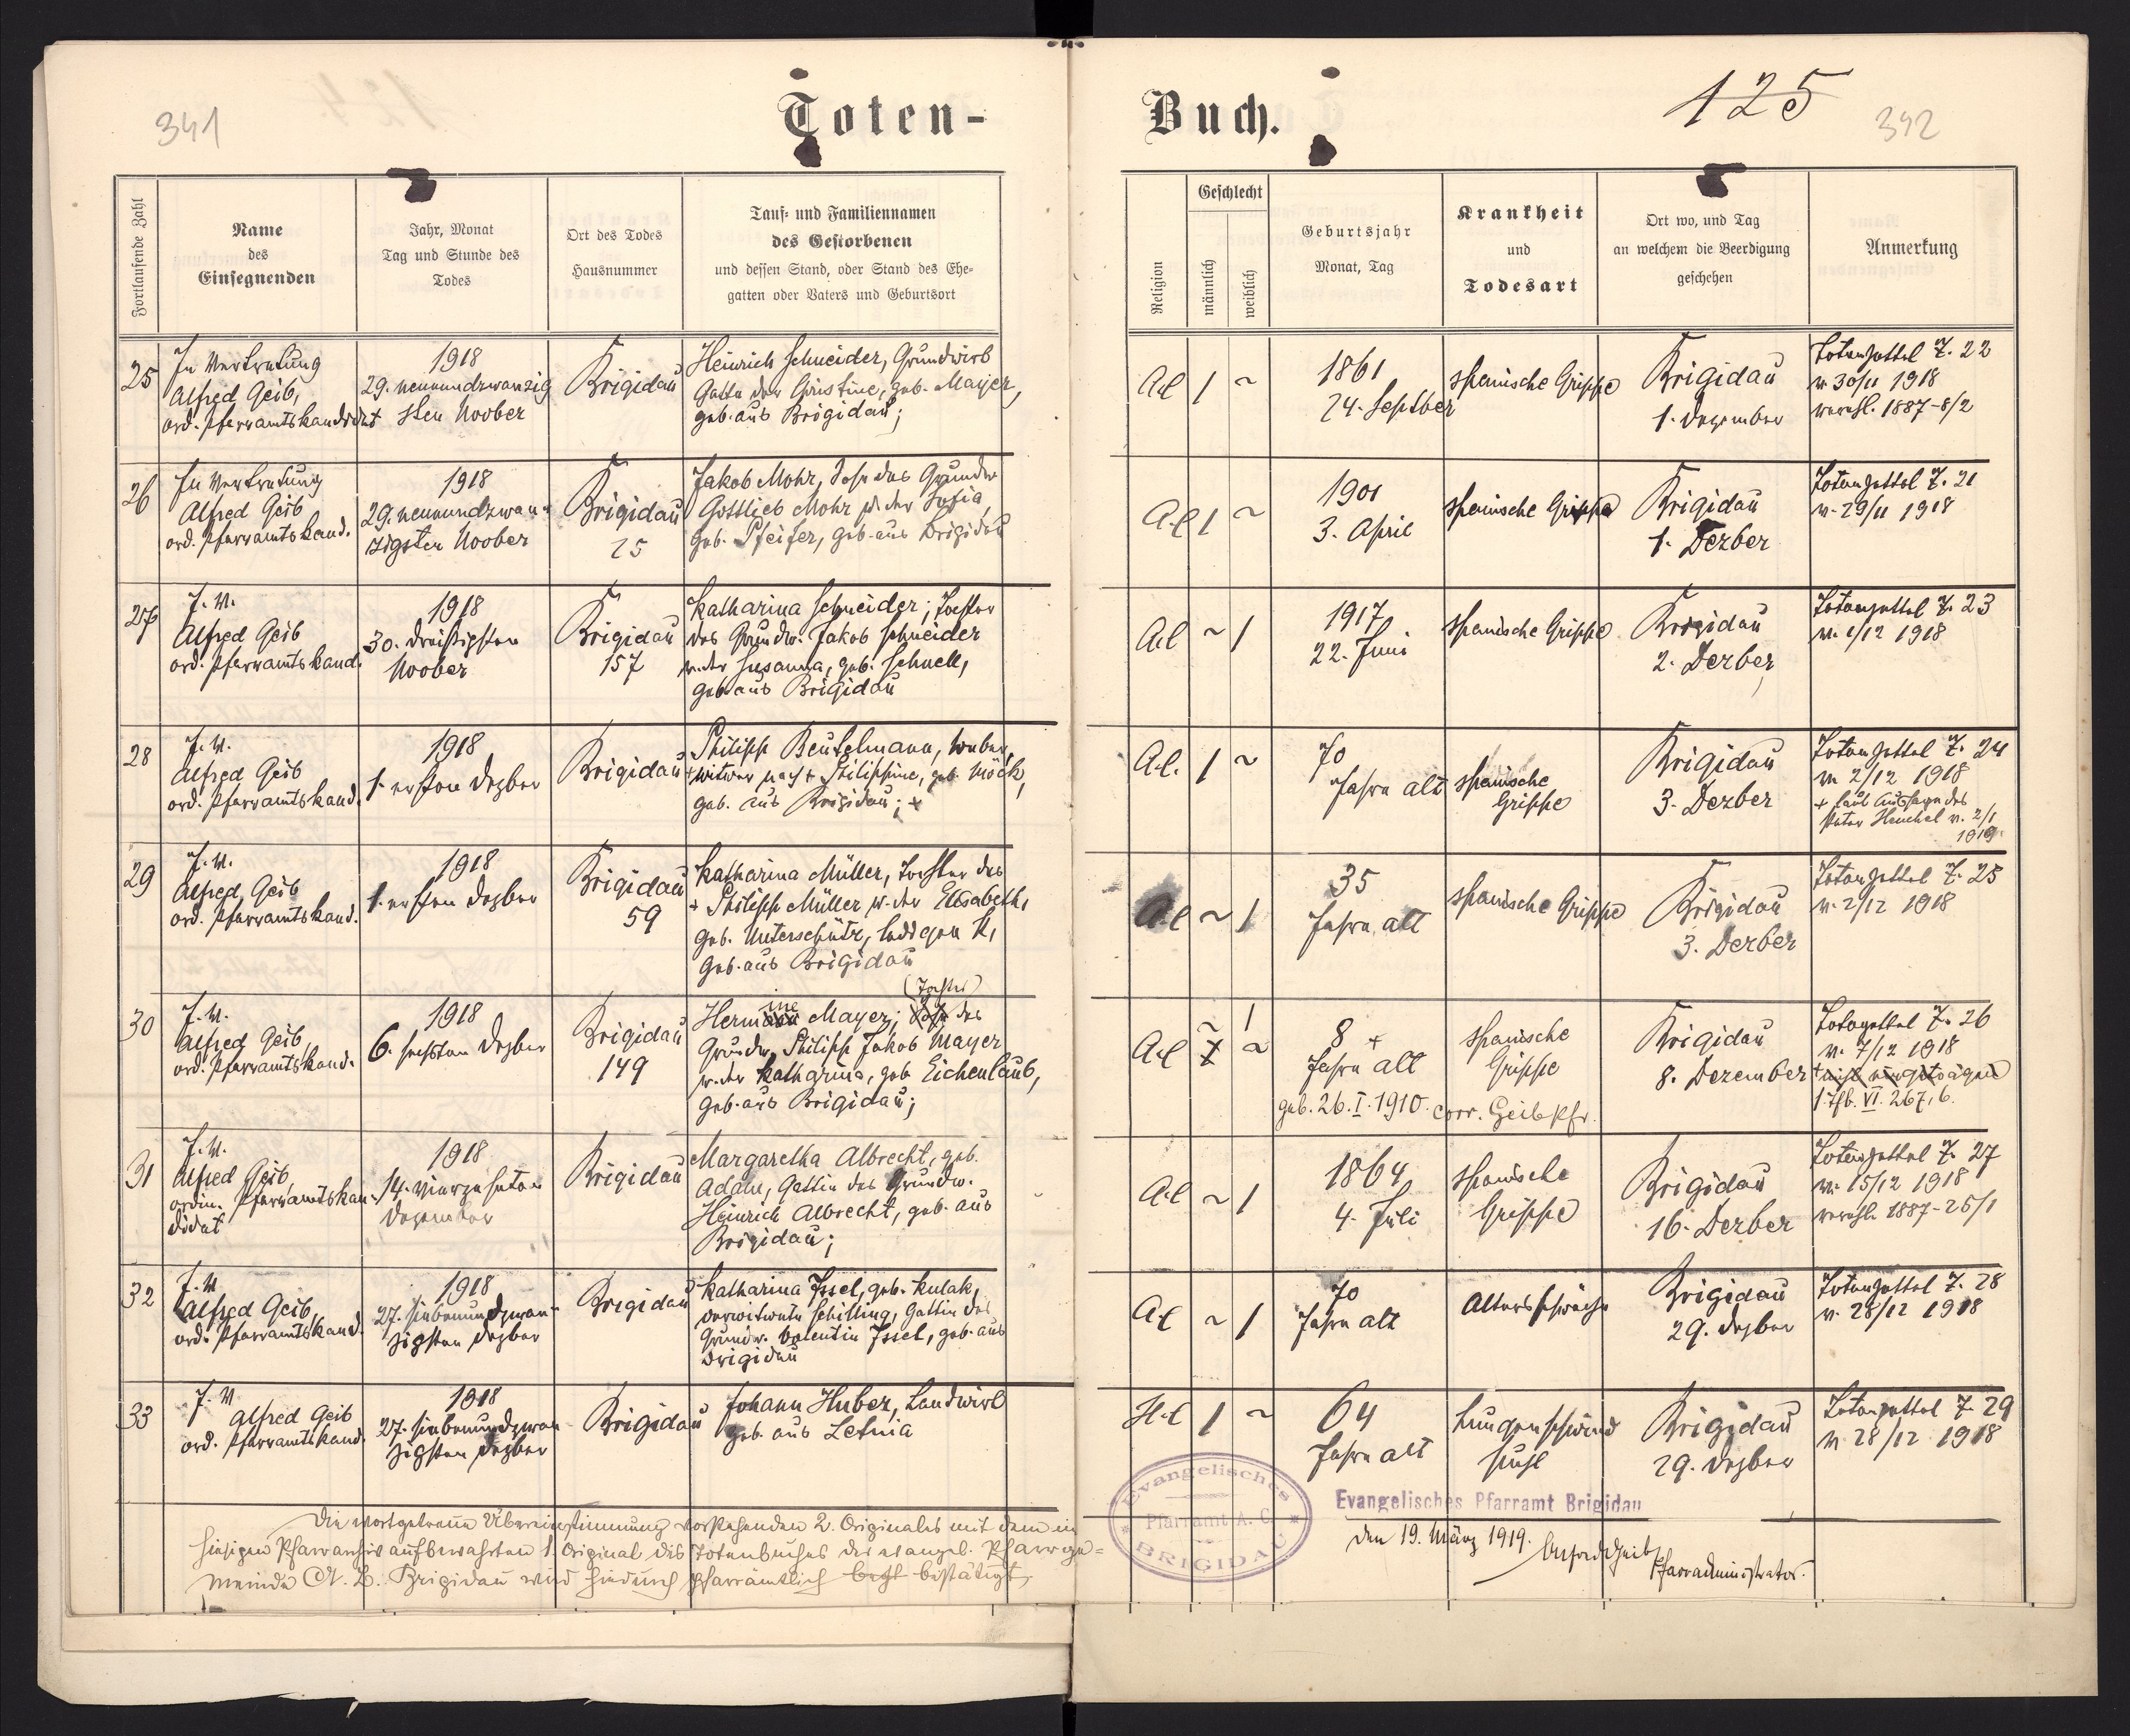 341
Toten-
Buch.
125
392
Fortlaufende Zahl
Name
des
Einsegnenden
Jahr, Monat
Tag und Stunde des
Todes
Ort des Todes
Hausnummer
Tauf- und Familiennamen
des Gestorbenen
und dessen Stand, oder Stand des Ehe-
gatten oder Vaters und Geburtsort
Religion
Geschlecht
männlich
weiblich
Geburtsjahr
Monat, Tag
Krankheit
und
Todesart
Ort wo, und Tag
an welchem die Beerdigung
geschehen
Anmerkung
25
In Vertretung
Alfred Geib,
ord. Pfarramtskandidat
1918
29. neunundzwanzig
sten Novber
Brigidau
Heinrich Schneider, Grundwirt
Gatte der Christine, geb. Mayer,
geb. aus Brigidau;
A.C
1
~
1861
24. Septber
spanische Grippe
Brigidau
1. Dezember
Totenzettel Z. 22
v. 30/11 1918
verehl. 1887-8/2
26
In Vertretung
Alfred Geib
ord. Pfarramtskand.
1918
29. neunundzwan-
zigsten Novber
Brigidau
25
Jakob Mohr, Sohn des Grundw
Gottlieb Mohr u. der Sofia,
geb. Pfeifer, geb. aus Brigidau
A.C
1
~
1901
3. April
spanische Grippe
Brigidau
1. Dezber
Totenzettel Z. 21
v. 29/11 1918
27
I. V.
Alfred Geib
ord. Pfarramtskand.
1918
30. dreißigsten
Novber
Brigidau
157
Katharina Schneider; Tochter
des Grundw. Jakob Schneider
u. der Susanna, geb. Schnell,
geb. aus Brigidau
A.C
~
1
1917
22. Juni
spanische Grippe
Brigidau
2. Dezber
Totenzettel Z. 23
v. 1/12 1918
28
I. V.
Alfred Geib
ord. Pfarramtskand.
1918
1. ersten Dezber
Brigidau
Philipp Beutelmann, Weber,
+ Witwer nach + Philippine, geb. Möck,
geb. aus Brigidau; +
A.C.
1
~
70
Jahre alt
spanische
Grippe
Brigidau
3. Dezber
Totenzettel Z. 24
v. 2/12 1918
+ laut Aussage des
Peter Henchel v. 2/1
1919.
29
I. V.
Alfred Geib
ord. Pfarramtskand.
1918
1. ersten Dezber
Brigidau
59
Katharina Müller, Tochter des
+ Philipp Müller u. der Elisabeth,
geb. Unterschütz,
geb. aus Brigidau
A.C
~
1
35
Jahre alt
spanische Grippe
Brigidau
3. Dezber
Totenzettel Z. 25
v. 2/12 1918
30
I. V.
Alfred Geib,
ord. Pfarramtskand.
1918
6. sechsten Dezber
Brigidau
149
(Tochter)
Hermine Mayer; Sohn des
Grundw. Philipp Jakob Mayer
u. der Katharina, geb. Eichenlaub,
geb. aus Brigidau;
A.C
~
1
8 +
Jahre alt
geb. 26. I. 1910. corr. Geib Pfr.
spanische
Grippe
Brigidau
8. Dezember
Totenzettel Z. 26
v. 7/12 1918
+ nicht eingetragen
1. Tfb. VI. 267, 6.
31
I. V.
Alfred Geib,
ordin. Pfarramtskan-
didat
1918
14. vierzehnten
Dezember
Brigidau
Margaretha Albrecht, geb.
Adam, Gattin des Grundw.
Heinrich Albrecht, geb. aus
Brigidau;
A.C
~
1
1864
4. Juli
spanische
Grippe
Brigidau
16. Dezber
Totenzettel Z. 27
v. 15/12 1918
verehl. 1887-25/1
32
I. V.
Alfred Geib,
ord. Pfarramtskand.
1918
27. siebenundzwan-
zigsten Dezber
Brigidau
Katharina Issel, geb. Kulak,
verwitwete Schilling, Gattin des
Grundw. Valentin Issel, geb. aus
Brigidau
A.C
~
1
70
Jahre alt
Altersschwäche
Brigidau
29. Dezber
Totenzettel Z. 28
v. 28/12 1918
33
I. V
Alfred Geib
ord. Pfarramtskand.
1918
27. siebenundzwan
zigsten Dezber
Brigidau
Johann Huber, Landwirt
geb. aus Letnia
H.C
1
~
64
Jahre alt
Lungenschwind
sucht
Brigidau
29. Dezber
Totenzettel Z. 29
v. 28/12 1918
Die wortgetreue Übereinstimmung vorstehenden 2. Originales mit dem im
hiesigen Pfarrarchiv aufbewahrten 1. Original des Totenbuches der evangel. Pfarrge-
meinde A. C. Brigidau wird hiedurch pfarrämtlich bestätigt,
Evangelisches
Pfarramt A. C.
BRIGIDAU
Evangelisches Pfarramt Brigidau
den 19. März 1919.
Alfred Geib
Pfarradministrator.